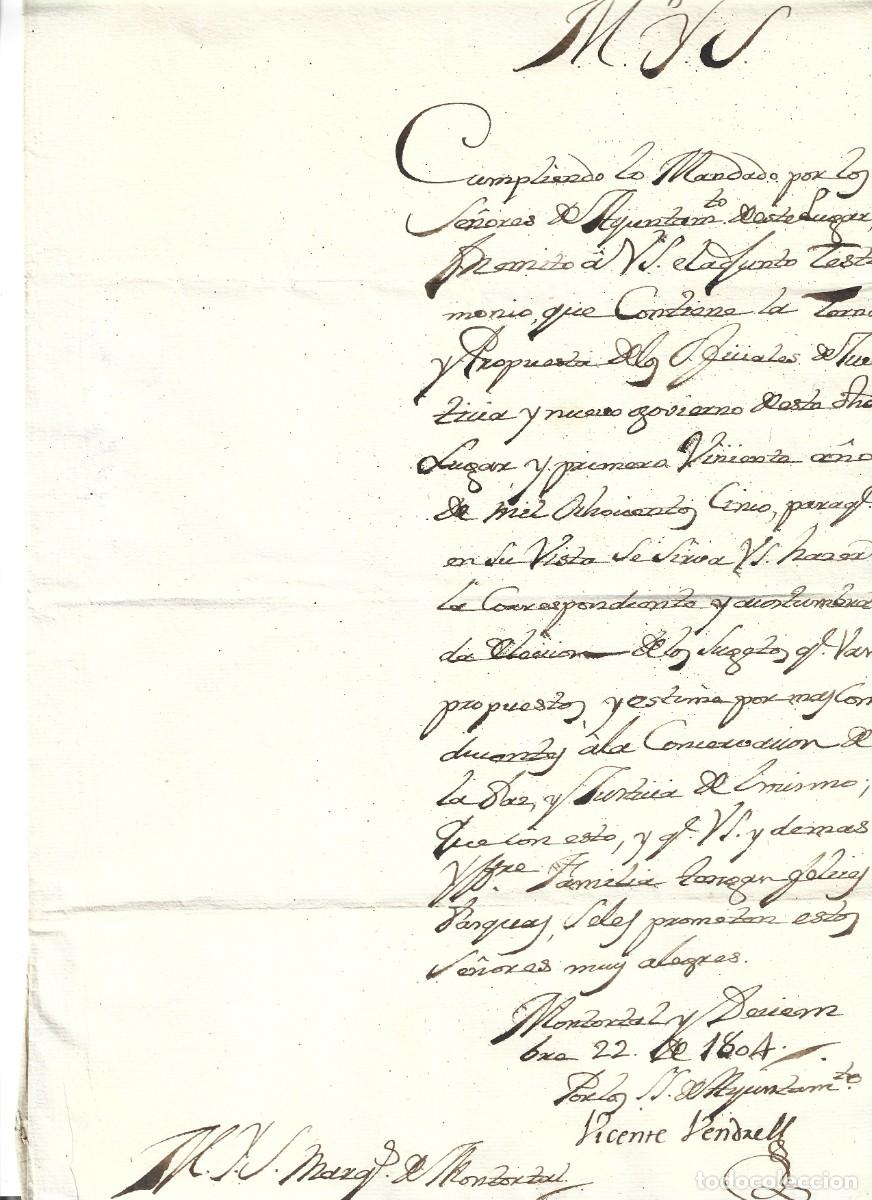 M. Y S.
Cumpliendo lo Mandado por los
Señores de Ayuntam.to deste Lugar,
Remito â VS. el adjunto Testi
monio, que Contiene la Terna
y Propuesta delos Oficiales de Jus
ticia y nuevo govierno deste dho
Lugar y primero Viniente año
de mil Ochocientos Cinco, paraq.e
en su Vista se sirva VS. hazer
la Correspondiente y acostumbra
da eleccion delos Sugetos q.e Van
propuestos y estime por mas Con
ducentes âla Concervacion de
la Paz, y Justicia de el mismo;
Que con esto, y q.e VS. y demas
Yll.re Familia tengan felices
Pasquas, seles prometen estos
Señores muy alegres.
Montortal y Deciem
bre 22. de 1804.
Por los SS. de Ayuntam.to
Vicente Vendrell
M. Y. S. Marq.s de Montortal
todocoleccion